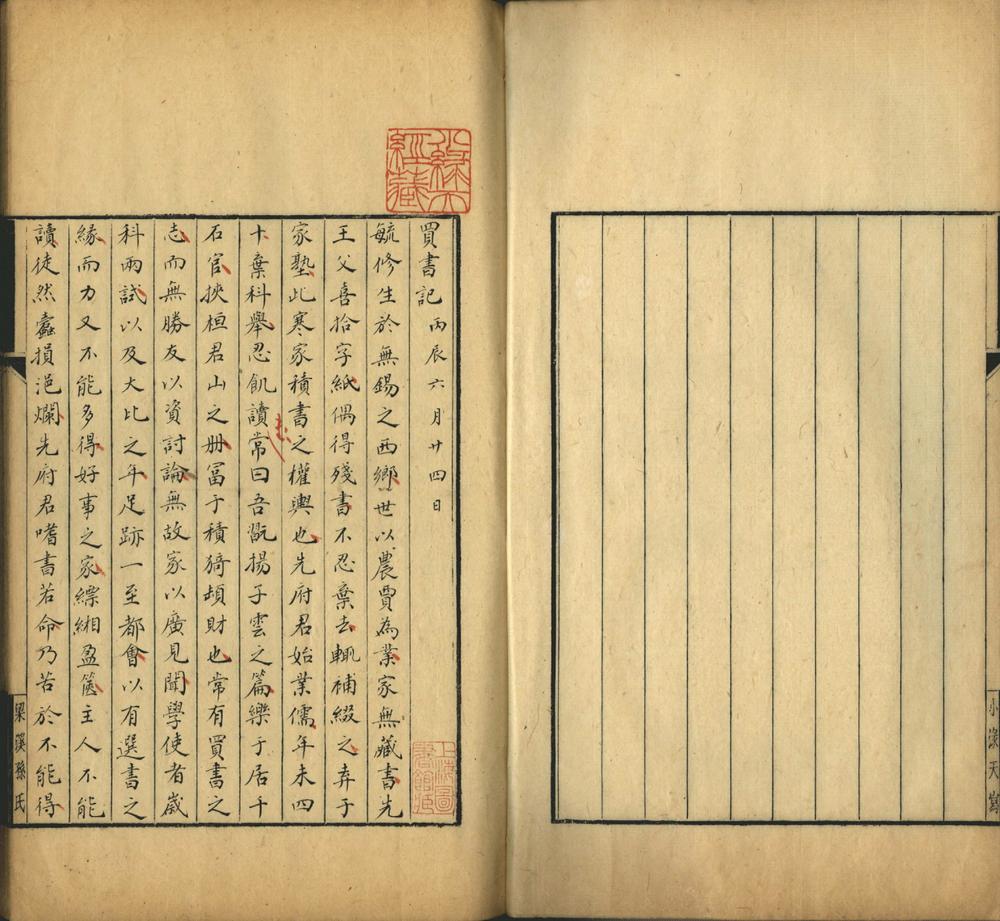 買書記 丙辰六月廿四日
毓修生於無錫之西鄉世以農賈為業家無藏書先
王父喜拾字紙偶得殘書不忍棄去輒補綴之弆于
家塾此寒家積書之權輿也先府君始業儒年未四
十棄科舉忍飢讀常曰吾翫揚子雲之篇樂于居千
石官挾桓君山之册冨于積猗頓財也常有買書之
志而無勝友以資討論無故家以廣見聞學使者歲
科兩試以及大比之年足跡一至都會以有選書之
緣而力又不能多得好事之家縹緗盈篋主人不能
讀徒然蠹損浥爛先府君嗜書若命乃若於不能得
梁溪孫氏
小淥天
小綠天經藏
上海圖書館藏